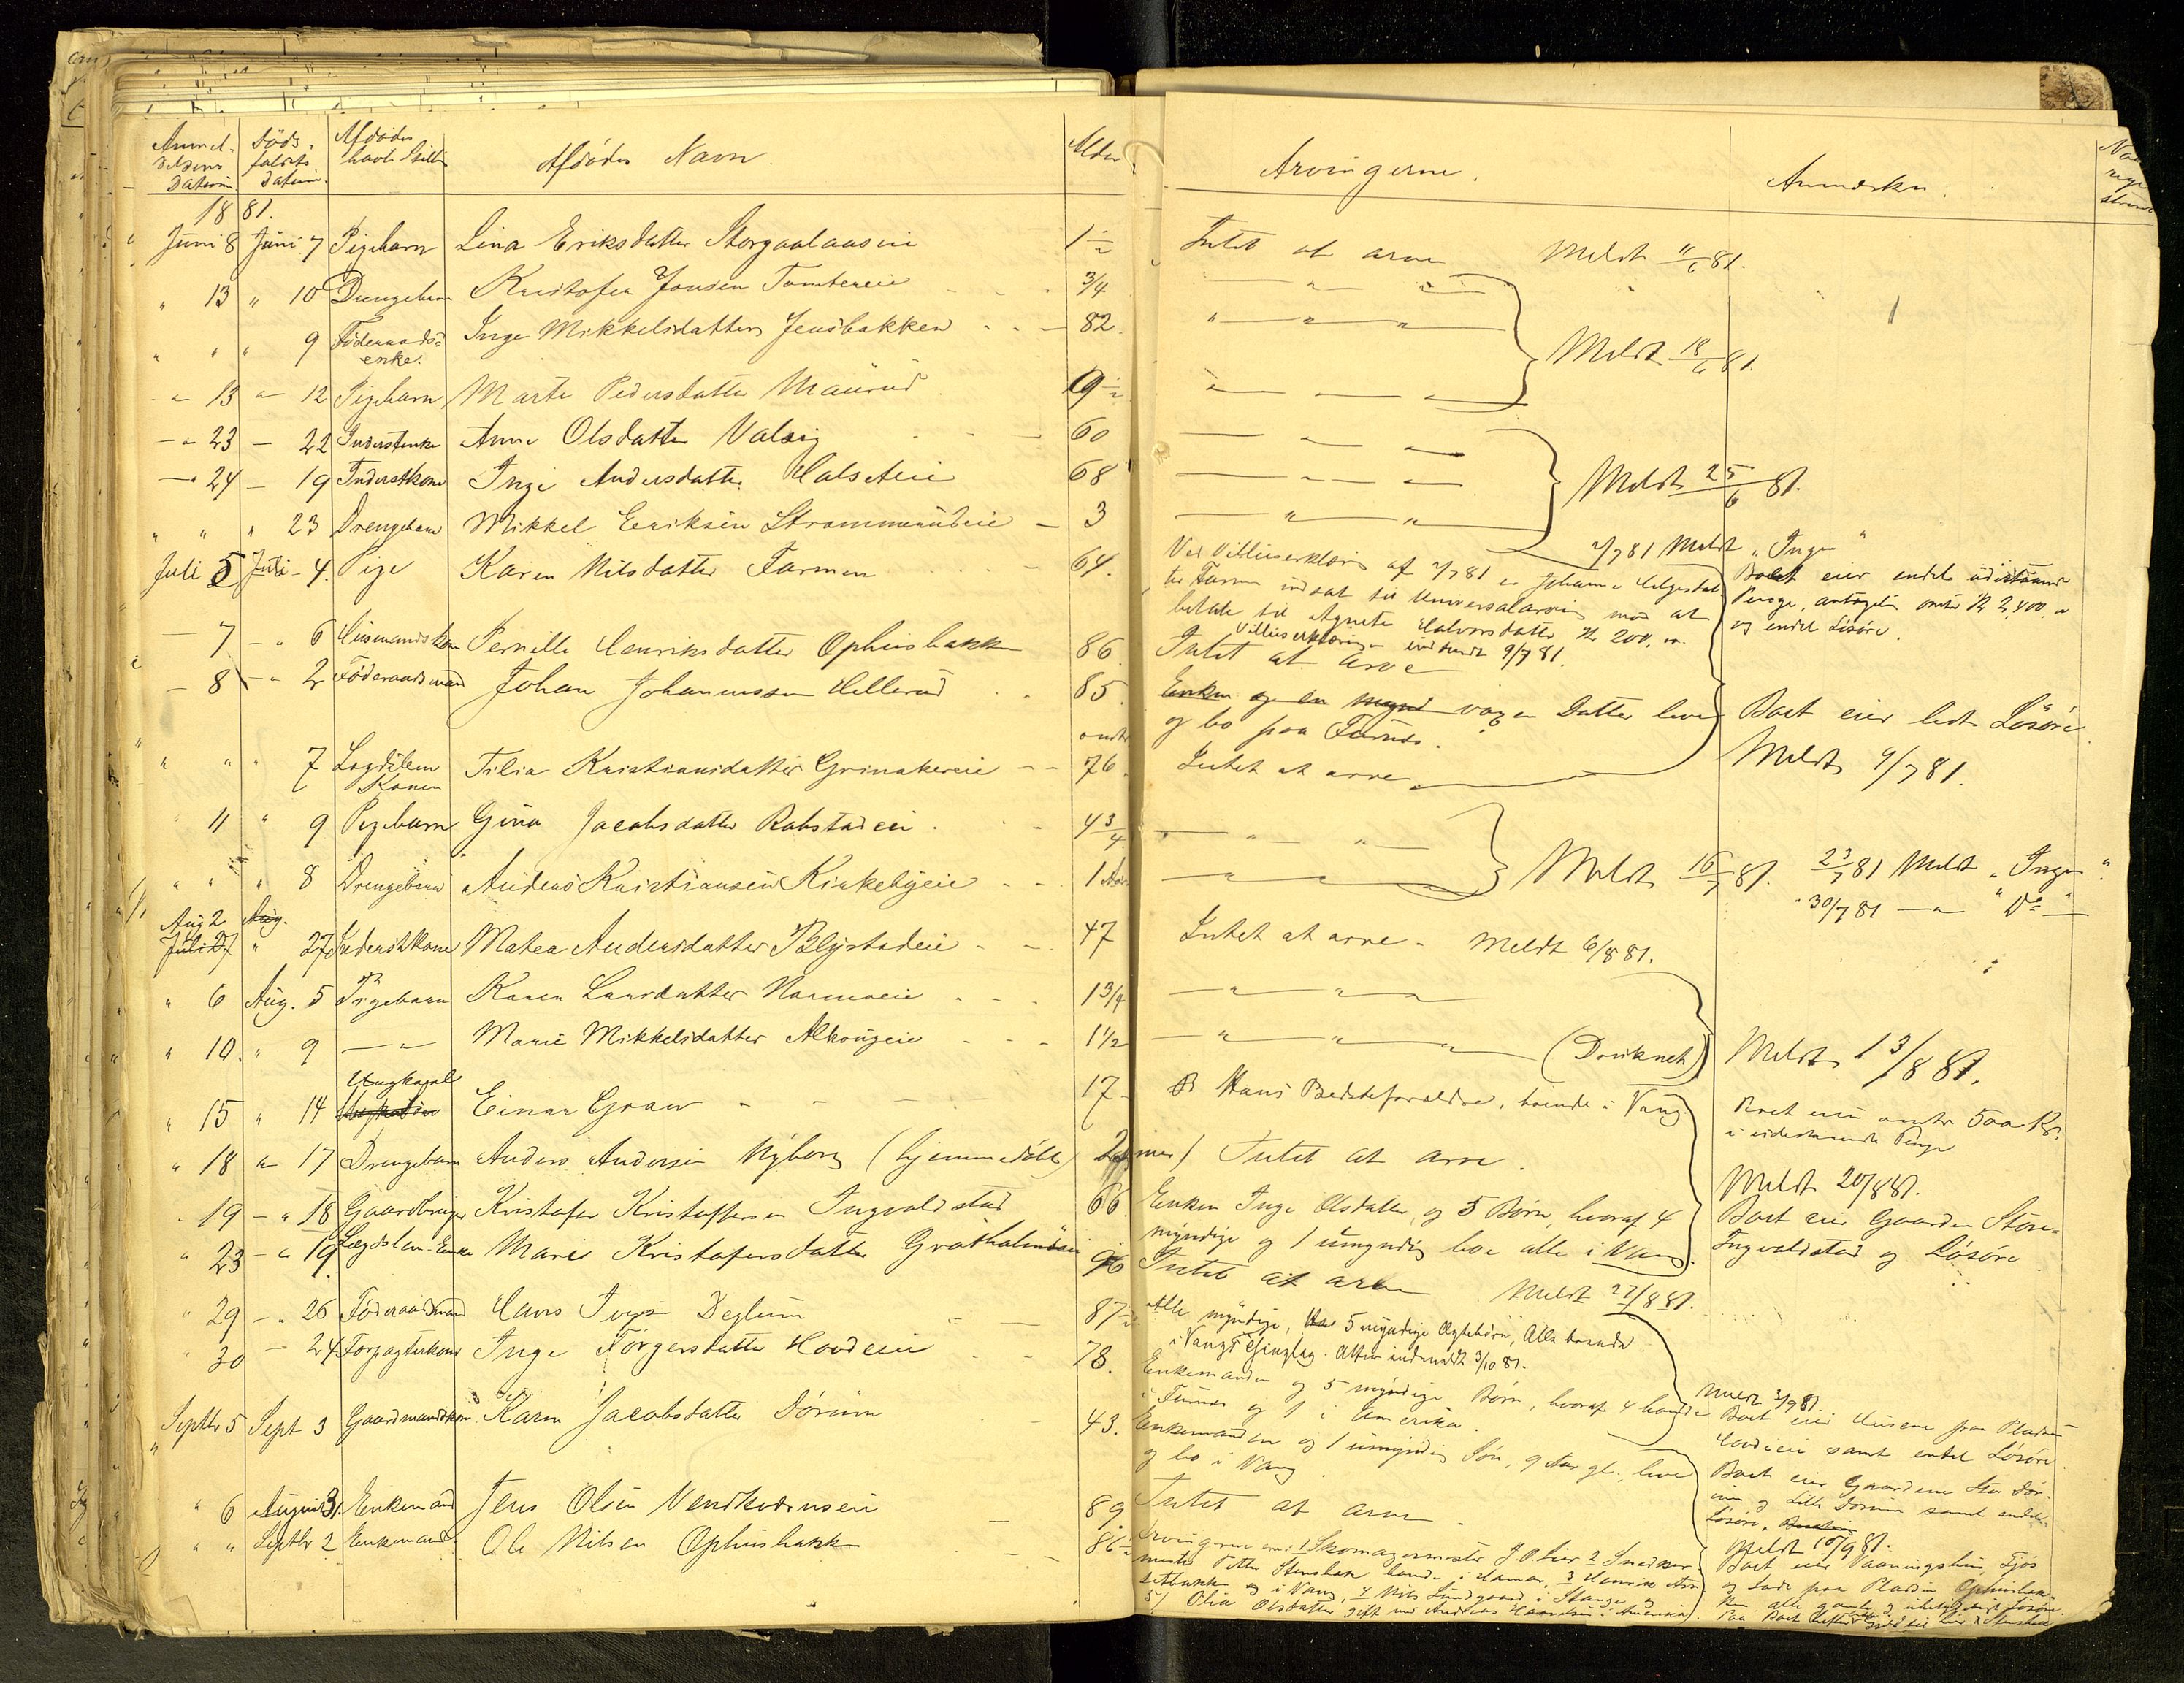 Anmel- Döds- Afdødes Afdødes Navn. Alder
delsens faldets havte Stilli
Datum Datum
Arvingerne. Anmærkn.
1881.
Juni 8 Juni 7 Pigebarn Lina Eriksdatter Storgaalaaseie 1½ Intet at arve Meldt 11/6 81.
" 13 " 10 Drengebarn Kristofer Jonsen Tomtereie 3/4
" " " 9 Föderaads- Inge Mikkelsdatter Jensbakken 82. Meldt 18/6 81.
enke.
" 13 " 12 Pigebarn Marte Pedersdatter Maurud 9½
" 23 – 22 Inderstenke Anne Olsdatter Valsig 60
" 24 – 19 Inderstkone Inge Andersdatter Halseteie 68 Meldt 25/6 81.
" " " 23 Drengebarn Mikkel Eriksen Strommerudeie 3
2/7 81 Meldt "Ingen"
Juli 5 Juli 4. Pige Karen Nilsdatter Farmen 64. Ved Villieserklæring af 2/7 81 er Johanne Helgesdat-
ter Farmen indsat til Universalarving mod at
betale til Agnete Halvorsdatter Kr 200,00.
Villieserklæringen indsendt 9/7 81.
Boet eier endel udestaaende
Penge, antagelig omtr Kr 2,400,00
og endel Lösöre.
– 7 – " 6 Husmandskone Pernille Henriksdatter Ophusbakken 86. Intet at arve
– 8 – " 2 Föderaadsmand Johan Johannessen Hellerud 85. Enken og en mynd voxen Datter lever
og bo paa Furnes.
Boet eier lidt Lösöre.
Meldt 9/7 81.
" " " 7 Lægdslem Tilia Kristiansdatter Grinakereie omtr 76. Intet at arve.
Konen
" 11 " 9 Pigebarn Gina Jacobsdatter Rabstadeie 4 3/4
" " " 8 Drengebarn Anders Kristiansen Kirkebyeie 1 Aar Meldt 16/7 81. 23/7 81 Meldt "Ingen"
30/7 81 — " — Do —
Aug 2 Aug.
Juli 27 " 27 Inderstkone Matea Andersdatter Blystadeie 47 Intet at arve - Meldt 6/8 81.
" 6 Aug. 5 Pigebarn Karen Larsdatter 1 3/4
" 10. " 9 — " Marie Mikkelsdatter Alhougeie 1½ (Druknet) Meldt 13/8 81.
Ungkarl
" 15 " 14 Einar Graw 17 Hans Bedsteforældre, boende i Vang. Boet eier omtr 500 Kr.
i udestaaende Penge
" 18 " 17 Drengebarn Anders Andersen Nyborg (hjemmedöbt) Intet at arve.
Meldt 20/8 81.
" 19 – " 18 Gaardbruger Kristofer Kristoffersen Ingvaldstad 66. Enken Inge Olsdatter, og 5 Börn, hvoraf 4
myndige og 1 umyndig boe alle i Vang.
Boet eier Gaarden Store-
Ingvaldstad og Lösöre
" 23 – " 19 Lægdslem-Enke Marie Kristofersdatter 96 Intet at arve Meldt 27/8 81.
" 29 – " 26 Föderaadsmand Hans Deglum 87½ Alle myndige, 5 myndige Ægtebörn, Alle boende
i Vangs Thinglag. Atter indmeldt 3/10 81.
" 30 – 24 Forpagterkone Inge Torgersdatter Hovdeeie 78. Enkemanden og 5 myndige Börn, hvoraf 4 boende
i Furnes og 1 i Amerika.
Meldt 3/9 81.
Boet eier Husene paa Pladsen
Hovdeeie samt endel Lösöre.
Septbr 5 Sept 3 Gaardmandskone Karen Jacobsdatter Dörum 43. Enkemanden og 1 umyndig Sön, 9 Aar gl., leve
og bo i Vang
Boet eier Gaardene Stor Dör-
um og Lille Dörum samt endel
Lösöre.
Meldt 10/9 81.
" 6 August 31. Enkemand Jens Olsen 89. Intet at arve
" " Septbr 2 Enkemand Ole Nilsen Ophusbakken 86½ Arvingerne ere: 1 Skomagermester J. O. Lier 2 Snedker-
mester Petter Stensbak boende i Hamar, 3 Henrik
og i Vang, 4 Nils Lundgaard i Stange og
5) Olia Olsdatter gift med Andreas i Amerika.
Boet eier Vaaningshus, Fjös
og Lade paa Pladsen Ophusbak-
ken alle gamle og ubetydeligt Lösöre.
Paa Boet hefter Gjeld til Lier & Stensbak